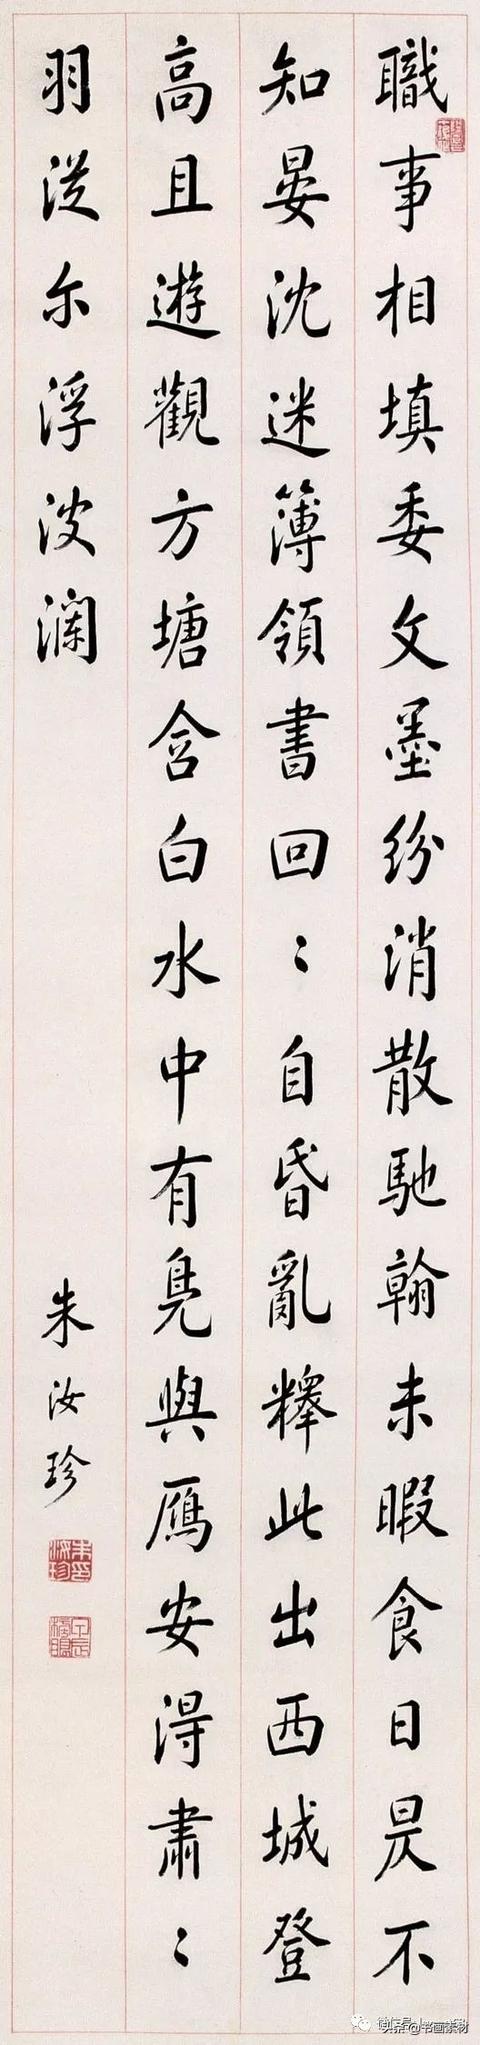 職事相填委文墨紛消散馳翰未暇食日昃不
知晏沈迷簿領書回〻自昏亂釋此出西城登
高且遊觀方塘含白水中有鳧與鴈安得肅〻
羽従尓浮波瀾
朱汝珍
头条@书画素材